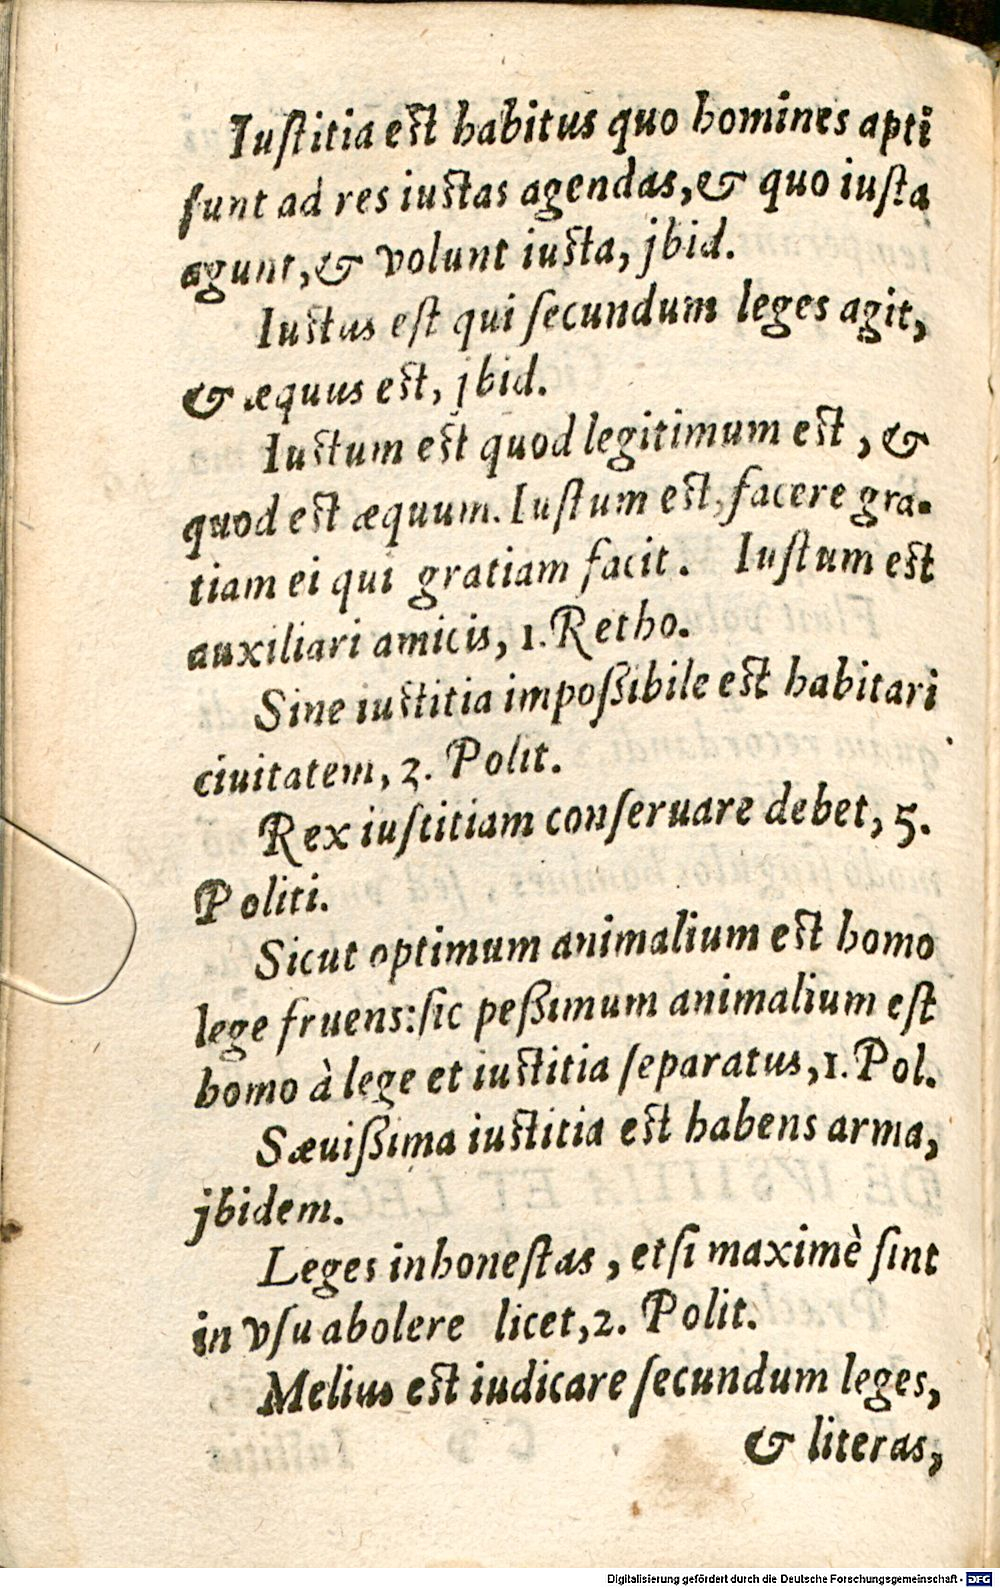 Iuſtitia eſt habitus quo homines apti
ſunt ad res iuſtas agendas, & quo iuſta
agunt, & volunt iuſta, jbid.
Iuſtus eſt qui ſecundum leges agit,
& æquus eſt, jbid.
Iuſtum eſt quod legitimum eſt, &
quod eſt æquum. Iuſtum eſt, facere gra-
tiam ei qui gratiam facit. Iuſtum eſt
auxiliari amicis, 1. Retho.
Sine iuſtitia impoßibile eſt habitari
ciuitatem, 2. Polit.
Rex iuſtitiam conſeruare debet, 5.
Politi.
Sicut optimum animalium eſt homo
lege fruens: ſic peßimum animalium eſt
homo à lege et iuſtitia ſeparatus, 1. Pol.
Sæuißima iuſtitia eſt habens arma,
jbidem.
Leges inhoneſtas, etſi maximè ſint
in vſu abolere licet, 2. Polit.
Melius eſt iudicare ſecundum leges,
& literas,
Digitalisierung gefördert durch die Deutsche Forschungsgemeinschaft - DFG